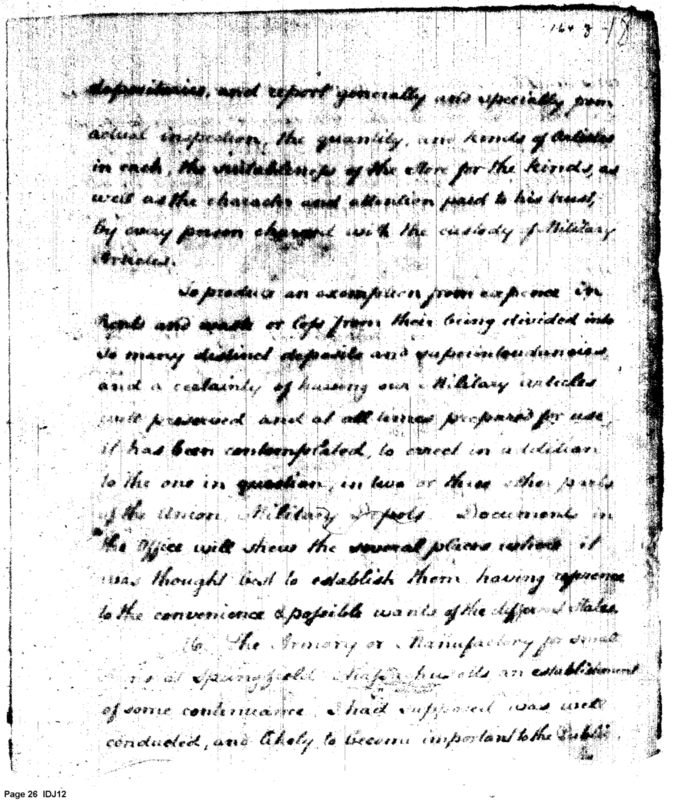 164 8 18
depositaries, and report generally and specially from
actual inspection, the quantity, and kinds of Articles
in each, the suitableness of the store for the kinds, as
well as the character and attention paid to his trust,
by every person charged with the custody of Military
Articles.
To produce an exemption from expence in
Rents and waste or loss from their being divided into
so many distinct deposits and superintendancies
and a certainty of having our Military articles
well preserved and at all times prepared for use,
it has been contemplated, to erect in addition
to the one in question, in two or three other parts
of the Union, Military Depots. Documents in
the Office will shew the several places where it
was thought best to establish them, having reference
to the convenience & possible wants of the different States.
16. The Armory or Manufactory for small
Arms at Springfield Massachusetts an establishment
of some continuance, I had supposed was well
conducted, and likely to become important to the Public.
Page 26 IDJ12